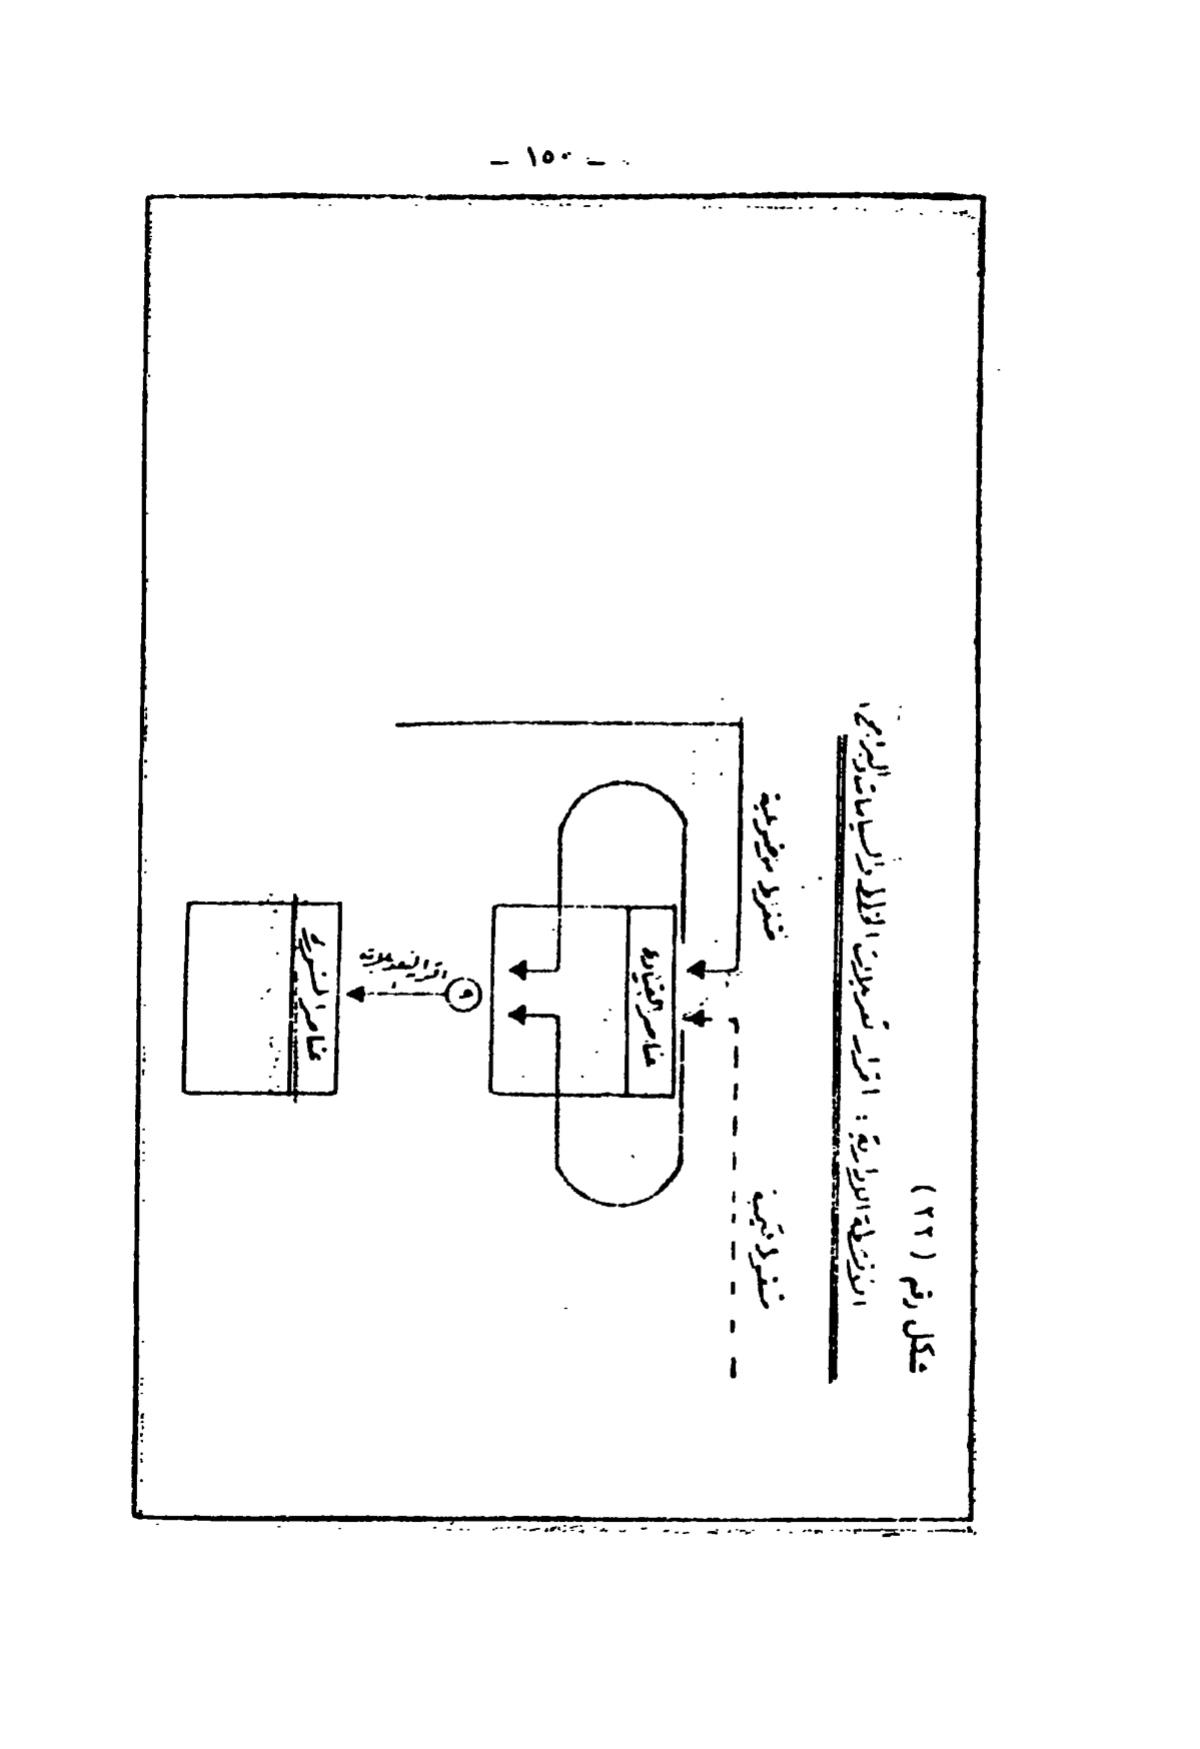 - ١٥٠ -
شكل رقم (٢٢)
الأنشطة الإدارية : اقرار تعديلات الخطط والسياسات والبرامج
ضغوط موضوعية
ضغوط قيمية
عناصر القيادة
٩
اقرار التعديلات
عناصر